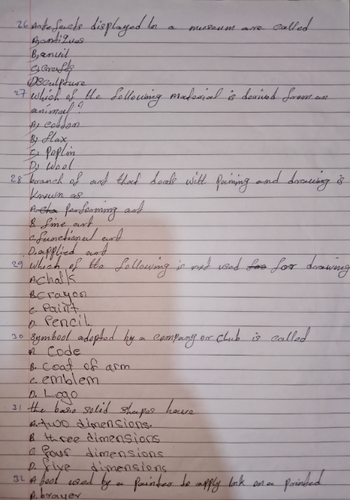 26 Artefacts displayed in a museum are called
A) antiques
B) anvil
C) crafts
D) Sculpture
27 Which of the following material is derived from an
animal?
A) cotton
B) flax
C) Poplin
D) Wool
28 branch of art that deals with and drawing is
known as
A. performing art
B. fine art
C. functional art
D. applied art
29 which of the following is not used for drawing
A. Chalk
B. crayon
C. Paint
D. Pencil
30 symbool adopted by a company or club is called
A. Code
B. Coat of arm
C. emblem
D. Logo
31 the base solid shapes have
A. two dimensions.
B. three dimensions
C. four dimensions
D. five dimensions
32 A tool used by a to apply ink on a